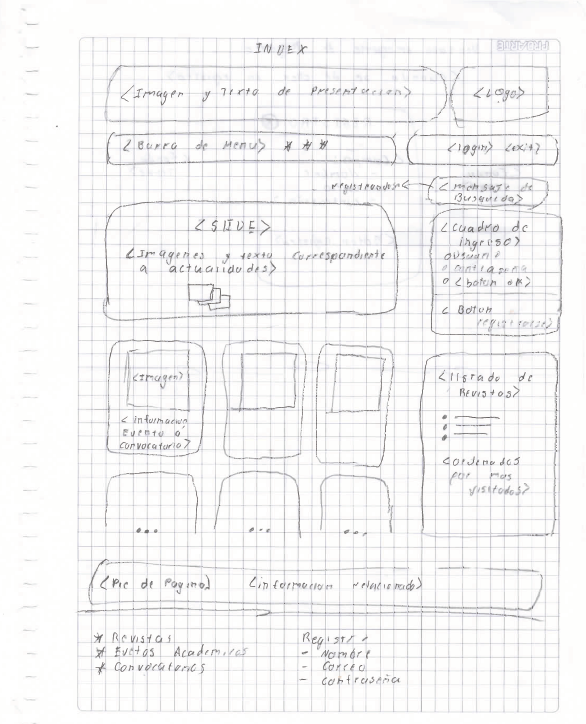 INDEX
<Imagen y Texto de Presentacion>
<Logo>
<Barra de Menu> * * *
<login> <exit>
registrandose <
<mensaje de
Busqueda>
<SLIDE>
<Imagenes y texto correspondiente
a actualidades>
<Cuadro de
ingreso>
o usuario
o contraseña
o <boton ok>
< Boton
registrarse>
<Imagen>
< informacion
Evento o
convocatoria>
<listado de
Revistas>
<ordenados
por mas
visitados>
...
...
...
<Pie de Pagina>
<informacion relacionada>
* Revistas
* Evetos Academicos
* Convocatorias
Registro
- Nombre
- Correo
- contraseña